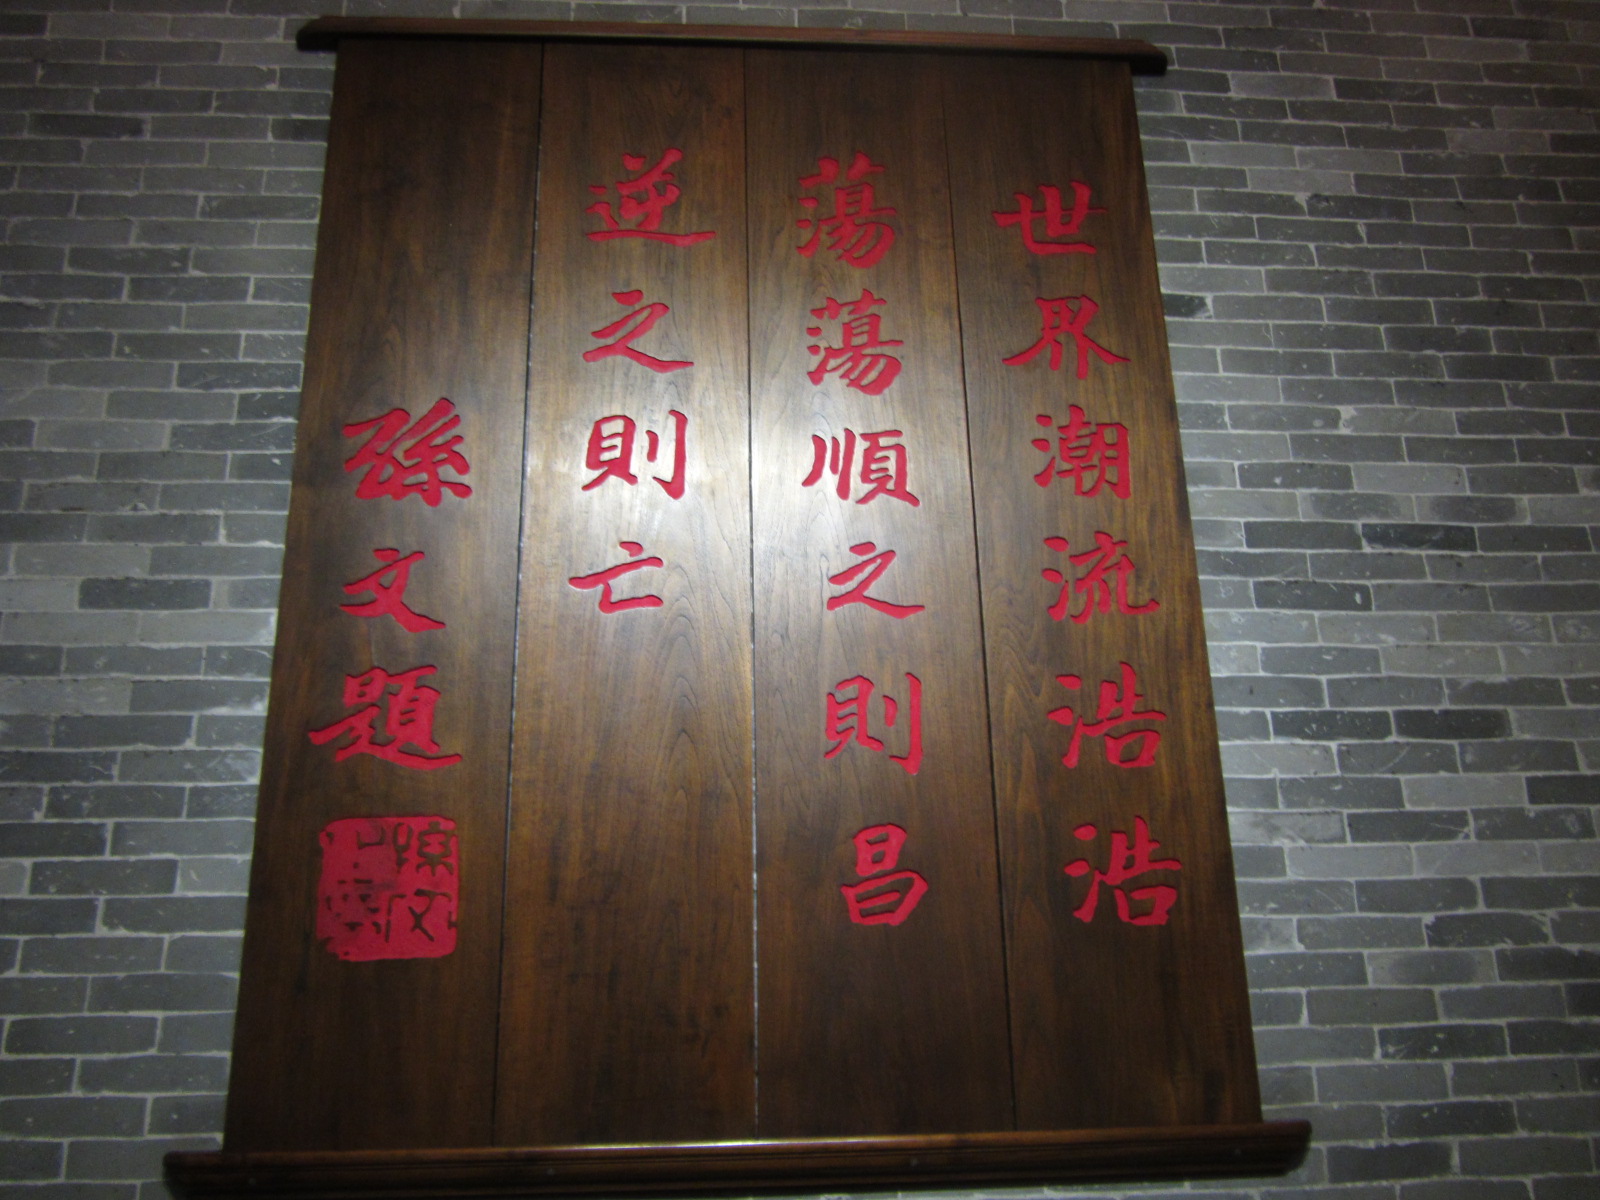 世界潮流浩浩
蕩蕩順之則昌
逆之則亡
孫文題
孫文